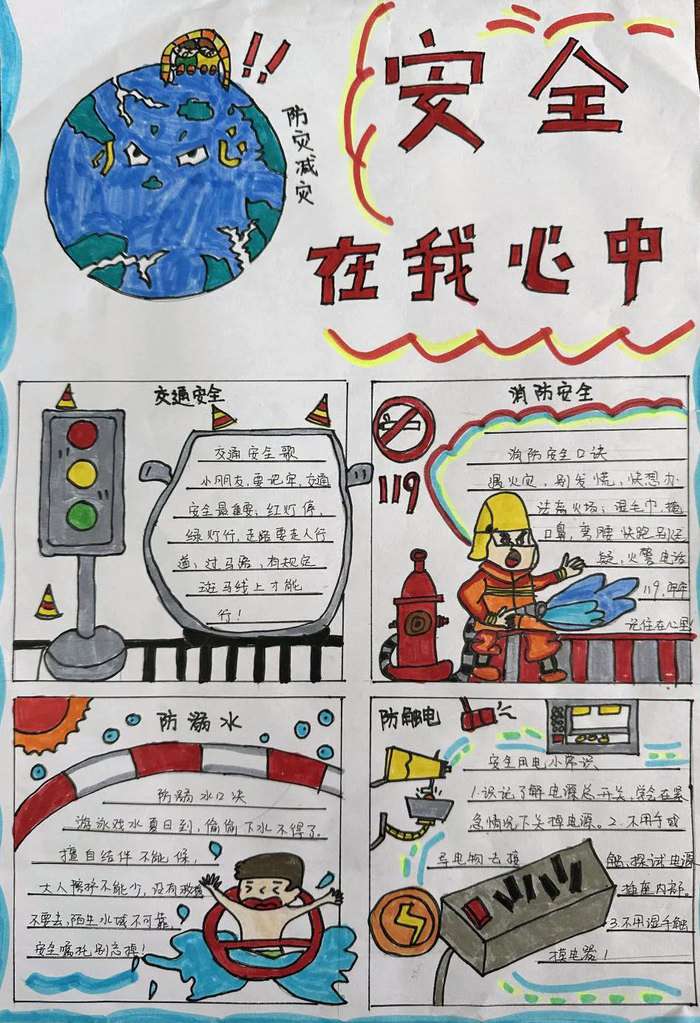 安全
!!
防灾减灾
在我心中
交通安全
交通安全歌
小朋友,要记牢,交通
安全最重要;红灯停,
绿灯行,走路要走人行
道;过马路,有规定
斑马线上才能
行!
消防安全
119
消防安全口诀
遇火灾,别发慌,快想办
法离火场;湿毛巾,捂
口鼻,弯腰快跑别迟
疑,火警电话
119,牢牢
记住在心里
防漏水
防漏水口决
游泳戏水夏日到,偷偷下水不得了。
擅自结伴不能候,
大人携护不能少,没有救援
不要去,陌生水域不可靠,
安全嘱托别忘掉!
防触电
安全用电小常识
1.认识了解电源总开关,学会在紧
急情况下关掉电源。2.不用手或
导电物去接
触、探试电源
插座内部。
3.不用湿手触
摸电器!